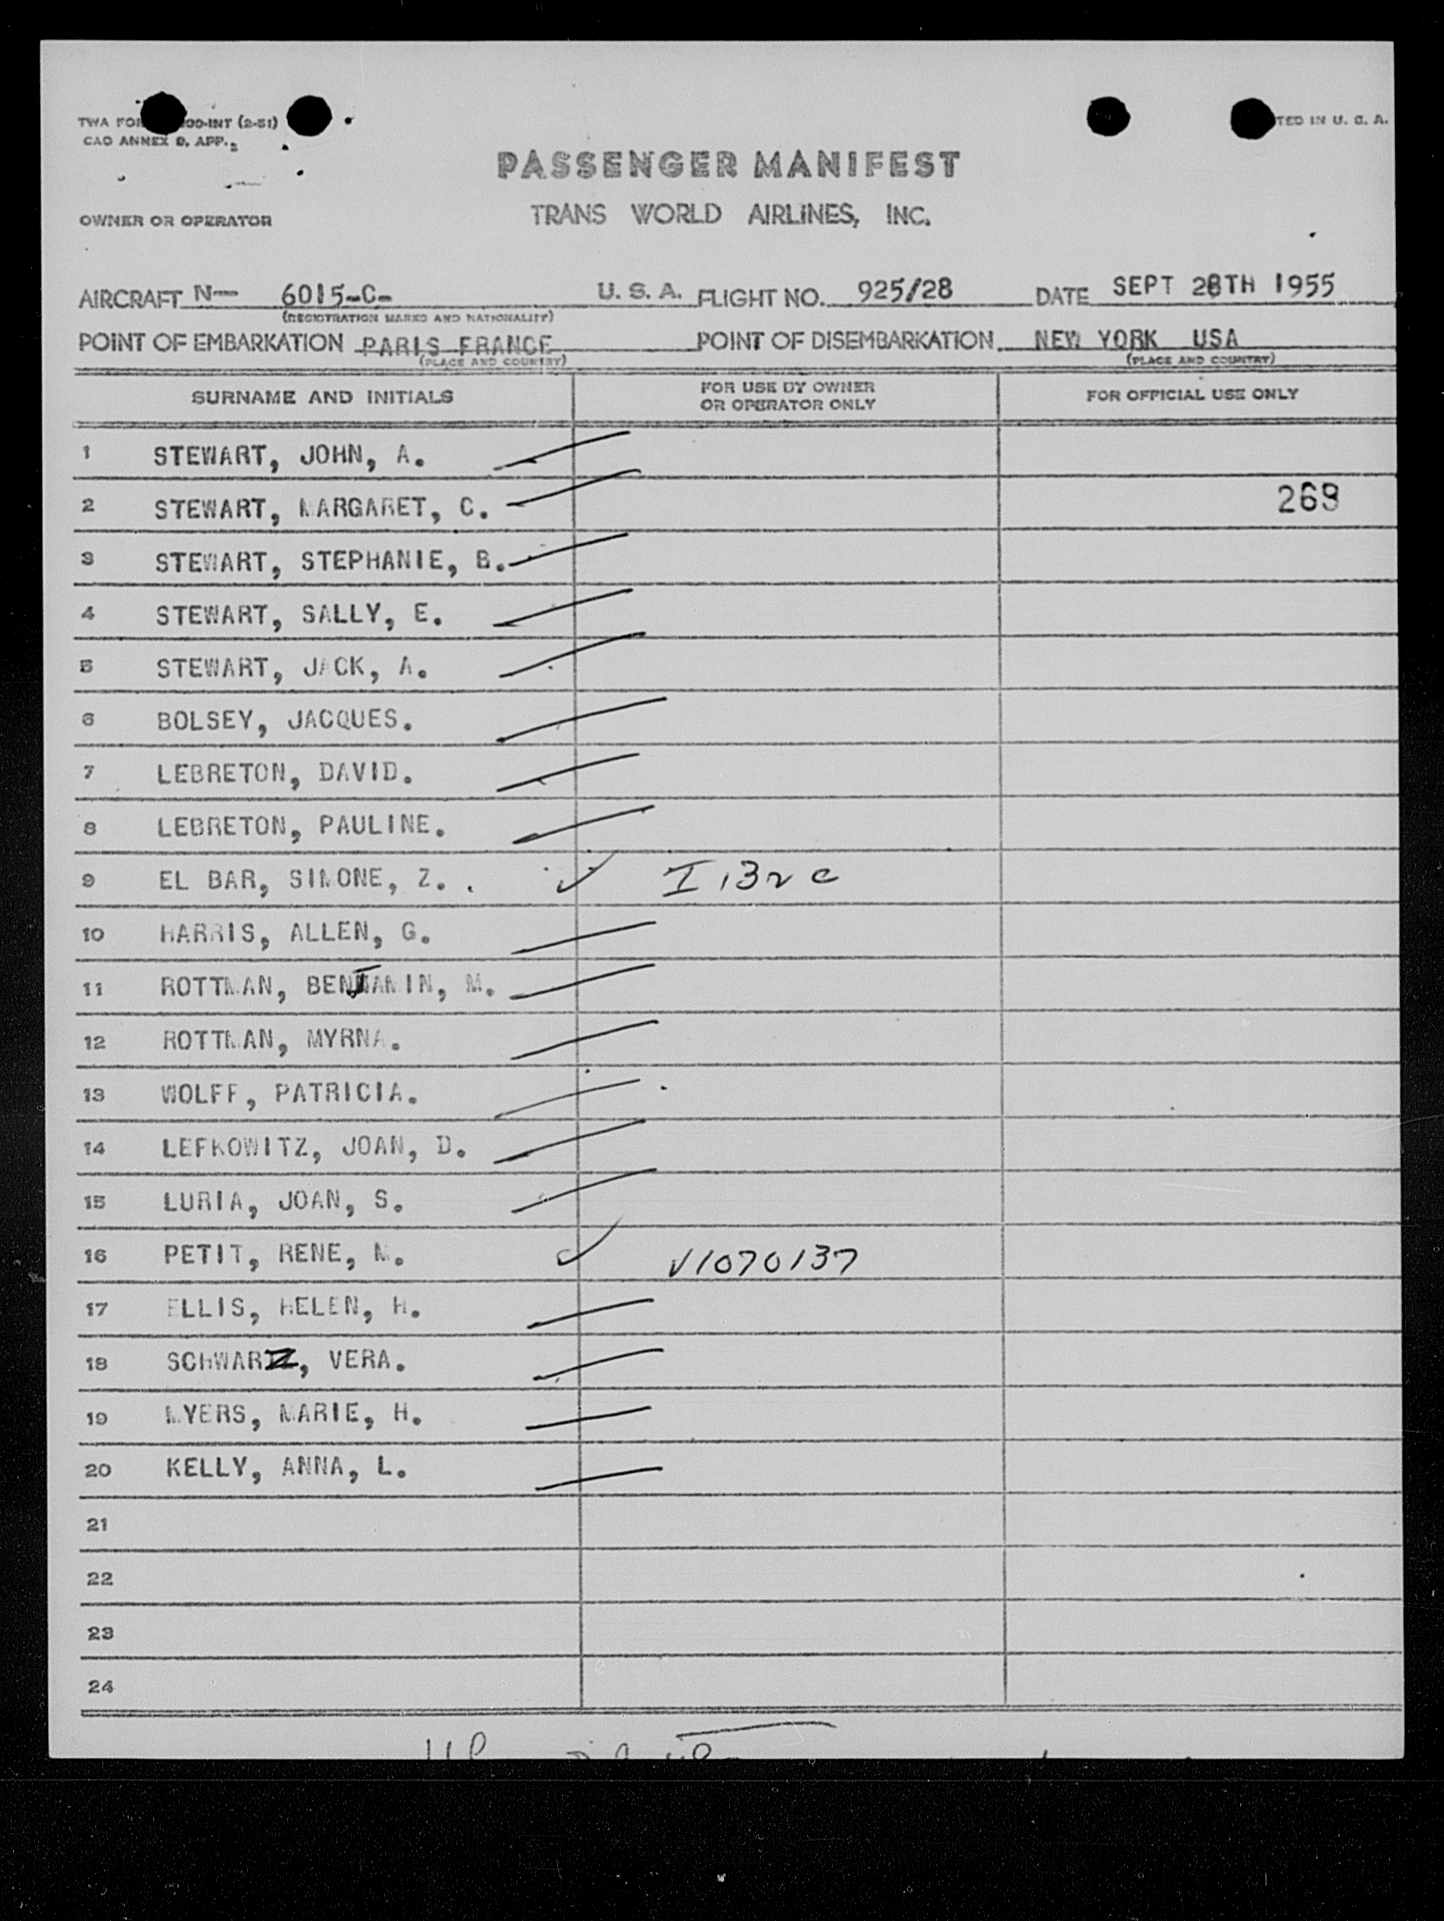 TWA FOR 00-INT (2-51)
TED IN U. S. A.
CAO ANNEX 9, APP.
PASSENGER MANIFEST
OWNER OR OPERATOR
TRANS WORLD AIRLINES, INC.
AIRCRAFT N— 6015-C- U. S. A. FLIGHT NO. 925/28 DATE SEPT 28TH 1955
(REGISTRATION MARKS AND NATIONALITY)
POINT OF EMBARKATION PARIS FRANCE POINT OF DISEMBARKATION NEW YORK USA
(PLACE AND COUNTRY) (PLACE AND COUNTRY)
SURNAME AND INITIALS FOR USE BY OWNER OR OPERATOR ONLY FOR OFFICIAL USE ONLY
1 STEWART, JOHN, A.
2 STEWART, MARGARET, C. 269
3 STEWART, STEPHANIE, B.
4 STEWART, SALLY, E.
5 STEWART, JACK, A.
6 BOLSEY, JACQUES.
7 LEBRETON, DAVID.
8 LEBRETON, PAULINE.
9 EL BAR, SIMONE, Z. .
10 HARRIS, ALLEN, G.
11 ROTTMAN, BENJAMIN, M.
12 ROTTMAN, MYRNA.
13 WOLFF, PATRICIA.
14 LEFKOWITZ, JOAN, D.
15 LURIA, JOAN, S.
16 PETIT, RENE, M. V1070137
17 ELLIS, HELEN, H.
18 SCHWARZ, VERA.
19 MYERS, MARIE, H.
20 KELLY, ANNA, L.
21
22
23
24